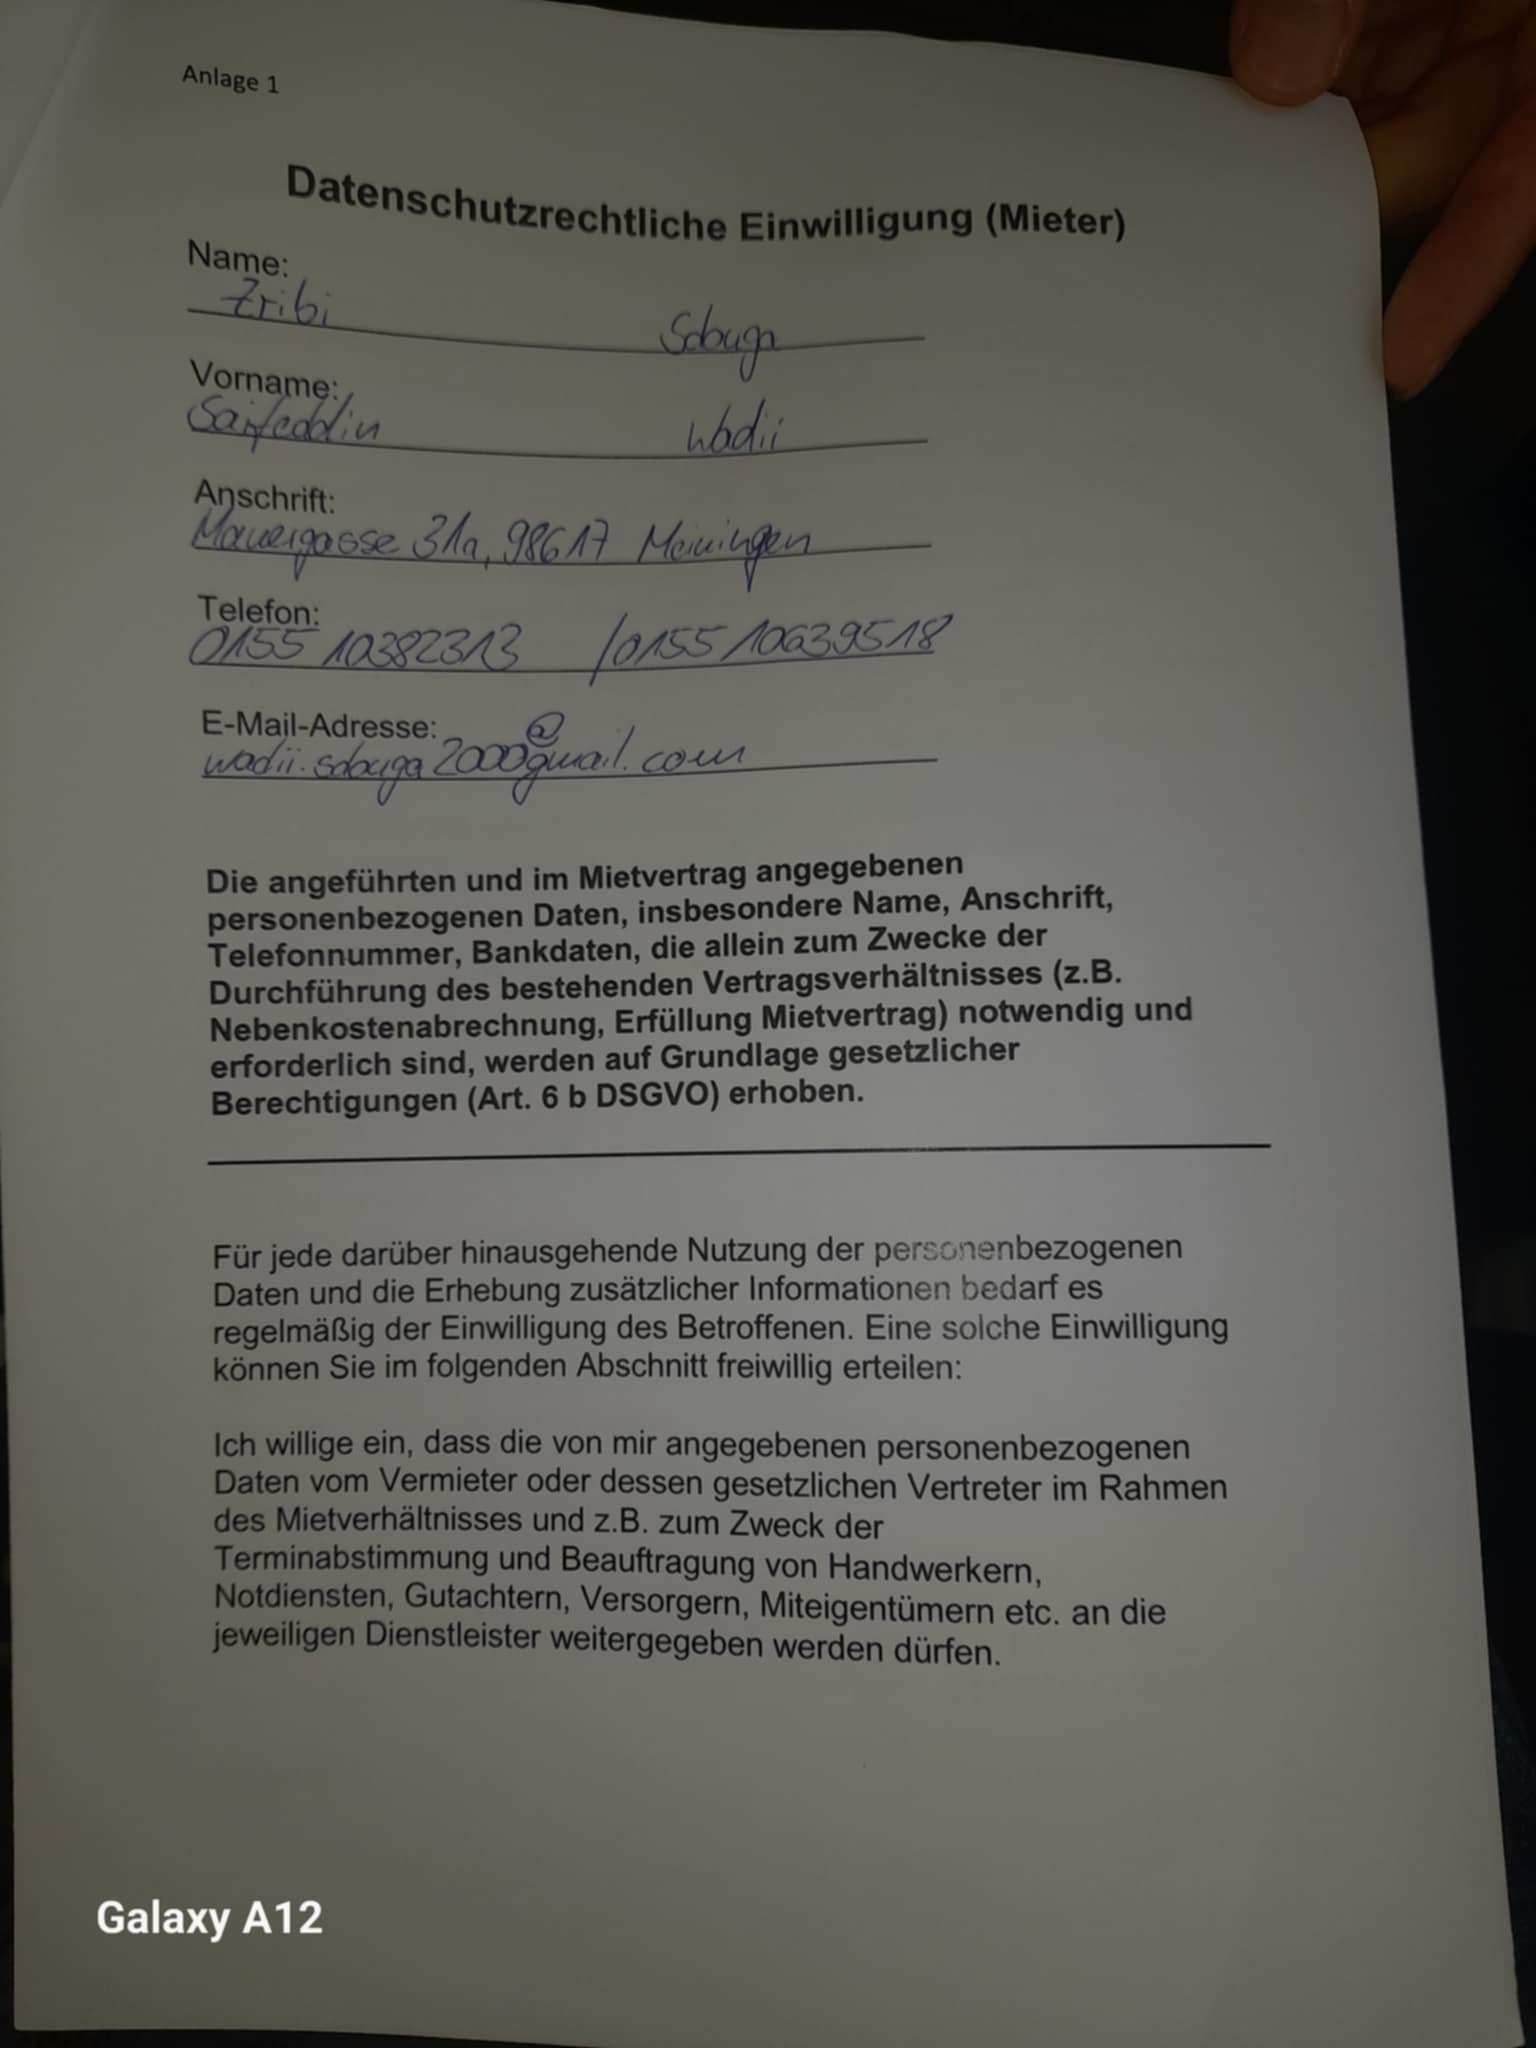 Anlage 1
Datenschutzrechtliche Einwilligung (Mieter)
Name:
Zribi Sdbuga
Vorname:
Saifeddin Wadii
Anschrift:
Mauergasse 31a, 98617 Meiningen
Telefon:
0155 10382313 /0155 10639518
E-Mail-Adresse:
wadii.sdbuga2000@gmail.com
Die angeführten und im Mietvertrag angegebenen
personenbezogenen Daten, insbesondere Name, Anschrift,
Telefonnummer, Bankdaten, die allein zum Zwecke der
Durchführung des bestehenden Vertragsverhältnisses (z.B.
Nebenkostenabrechnung, Erfüllung Mietvertrag) notwendig und
erforderlich sind, werden auf Grundlage gesetzlicher
Berechtigungen (Art. 6 b DSGVO) erhoben.
Für jede darüber hinausgehende Nutzung der personenbezogenen
Daten und die Erhebung zusätzlicher Informationen bedarf es
regelmäßig der Einwilligung des Betroffenen. Eine solche Einwilligung
können Sie im folgenden Abschnitt freiwillig erteilen:
Ich willige ein, dass die von mir angegebenen personenbezogenen
Daten vom Vermieter oder dessen gesetzlichen Vertreter im Rahmen
des Mietverhältnisses und z.B. zum Zweck der
Terminabstimmung und Beauftragung von Handwerkern,
Notdiensten, Gutachtern, Versorgern, Miteigentümern etc. an die
jeweiligen Dienstleister weitergegeben werden dürfen.
Galaxy A12